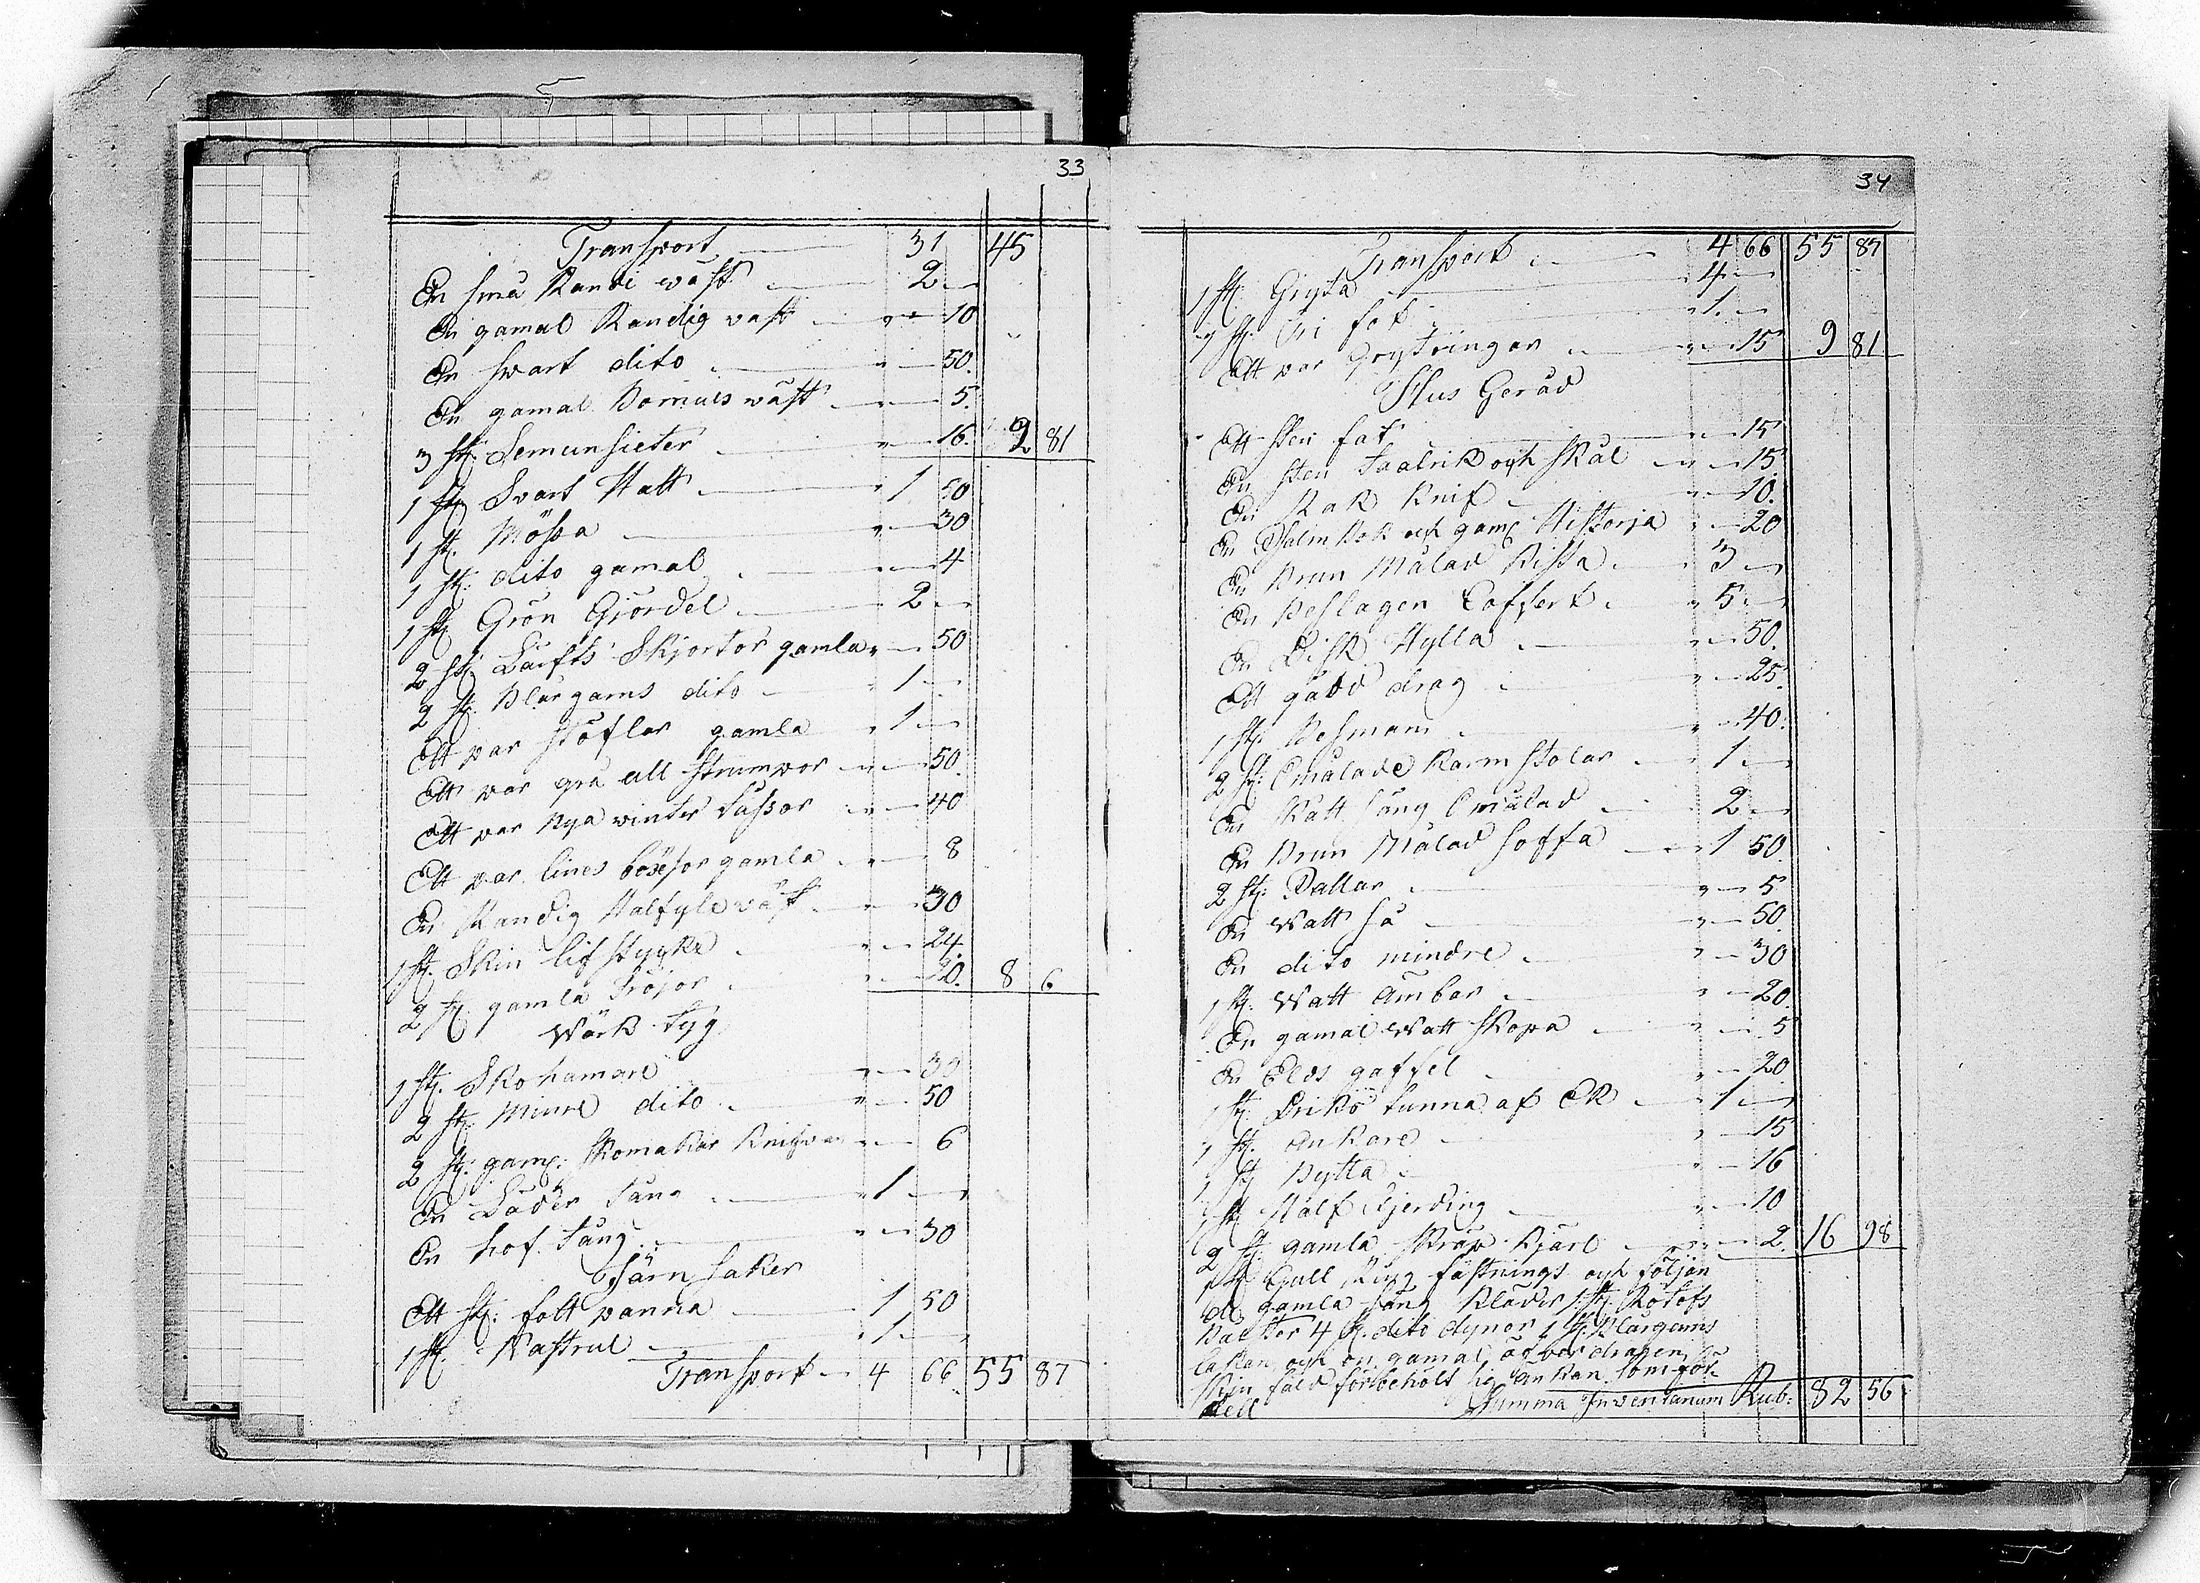 33
Transport — 31 45
En små Randi wäst — 2 —
En gamal Randig väst — " — 10
En swart dito — " — 50.
En gamal Bomuls wäst — " — 5.
3 st: Lemunsieter — " — 16. 2 81
1 st Svart Hatt — " 1 50
1 st. Mössa — " — 30
1 st: dito gamal — " — 4
1 st Grön Gjördel — 2 —
2 st: Lärfts Skjortor gamla " — 50
2 st. Blargarns dito — " 1 —
Ett par stöflar gamla " 1 —
Ett par grå ull strumpor — " — 50
Ett par nya winter tassor — " — 40
Ett par lines böxsor gamla — " — 8
En Randig Halfyle wäst — " — 30
1 st. Skin lifstycke — " — 24.
2 st. gamla Tröjor — " — 20. 8 6
Wärk tyg
1 st. Skohamare — " — 30
2 st. Minre dito — " — 50
2 st: gaml: skomakar knifvar " — 6
En Läder tång — " 1 —
En hof tång — " — 30
Järn saker
Ett st: folt panna — 1 50
1 st. Kastrul — " 1 —
Transport — 4 66 55 87
34
Transport — 4 66 55 87
1 st Gryta — 4 —
1 st. fat — " 1. —
Ett par Grytringar — " — 15 9 81
Hus Geråd
Ett Sten fat — " — 15
En sten Taalrik och skål — " — 15.
En Rak Knif — " — 10.
En Psalm bok och gaml Historja " — 20
En Brun Målad Kista — 3 —
En Beslagen Coffert — " 5 —
En Disk Hylla — " — 50.
Ett gådd drag — " — 25.
1 st. Besmann — " — 40.
2 st: Omålade Karm stolar — 1 —
En Ratt säng Omålad — 2 —
En Brun Målad soffa — " 1 50
2 st: Pallar — " — 5
En Watt så — " — 50.
En dito mindre — " — 30
1 st. Watt ämbar — " — 20
En gamal Watt skopa — " — 5
En Elds gaffel — " — 20
1 st. Driks tunna af Ek — " 1 —
1 st. ankare — " — 15
1 st Bytta — " — 16
1 st Half Fjerding — " — 10
2 st. gamla skräp kjärl — " — 2. 16 98
1 st Gull Ring fästnings och följan
de gamla säng kläder 1 st. Rotofs
Balster 4 st. dito dynor 1 st. Blårgarns
lakan och en gamal öfverdragen
skin fäld förbeholt hr änkan som för
dell
Summa Inventarium Rub: 82 56